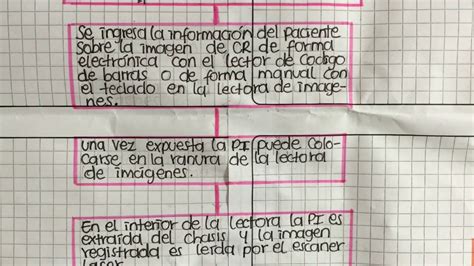 Se ingresa la información del paciente
sobre la imagen de CR de forma
electrónica con el lector de codigo
de barras o de forma manual con
el teclado en la lectora de image-
nes.
una vez expuesta la PI puede colo-
carse en la ranura de la lectora
de imágenes.
En el interior de la lectora la PI es
extraída del chasis y la imagen
registrada es leída por el escaner
laser